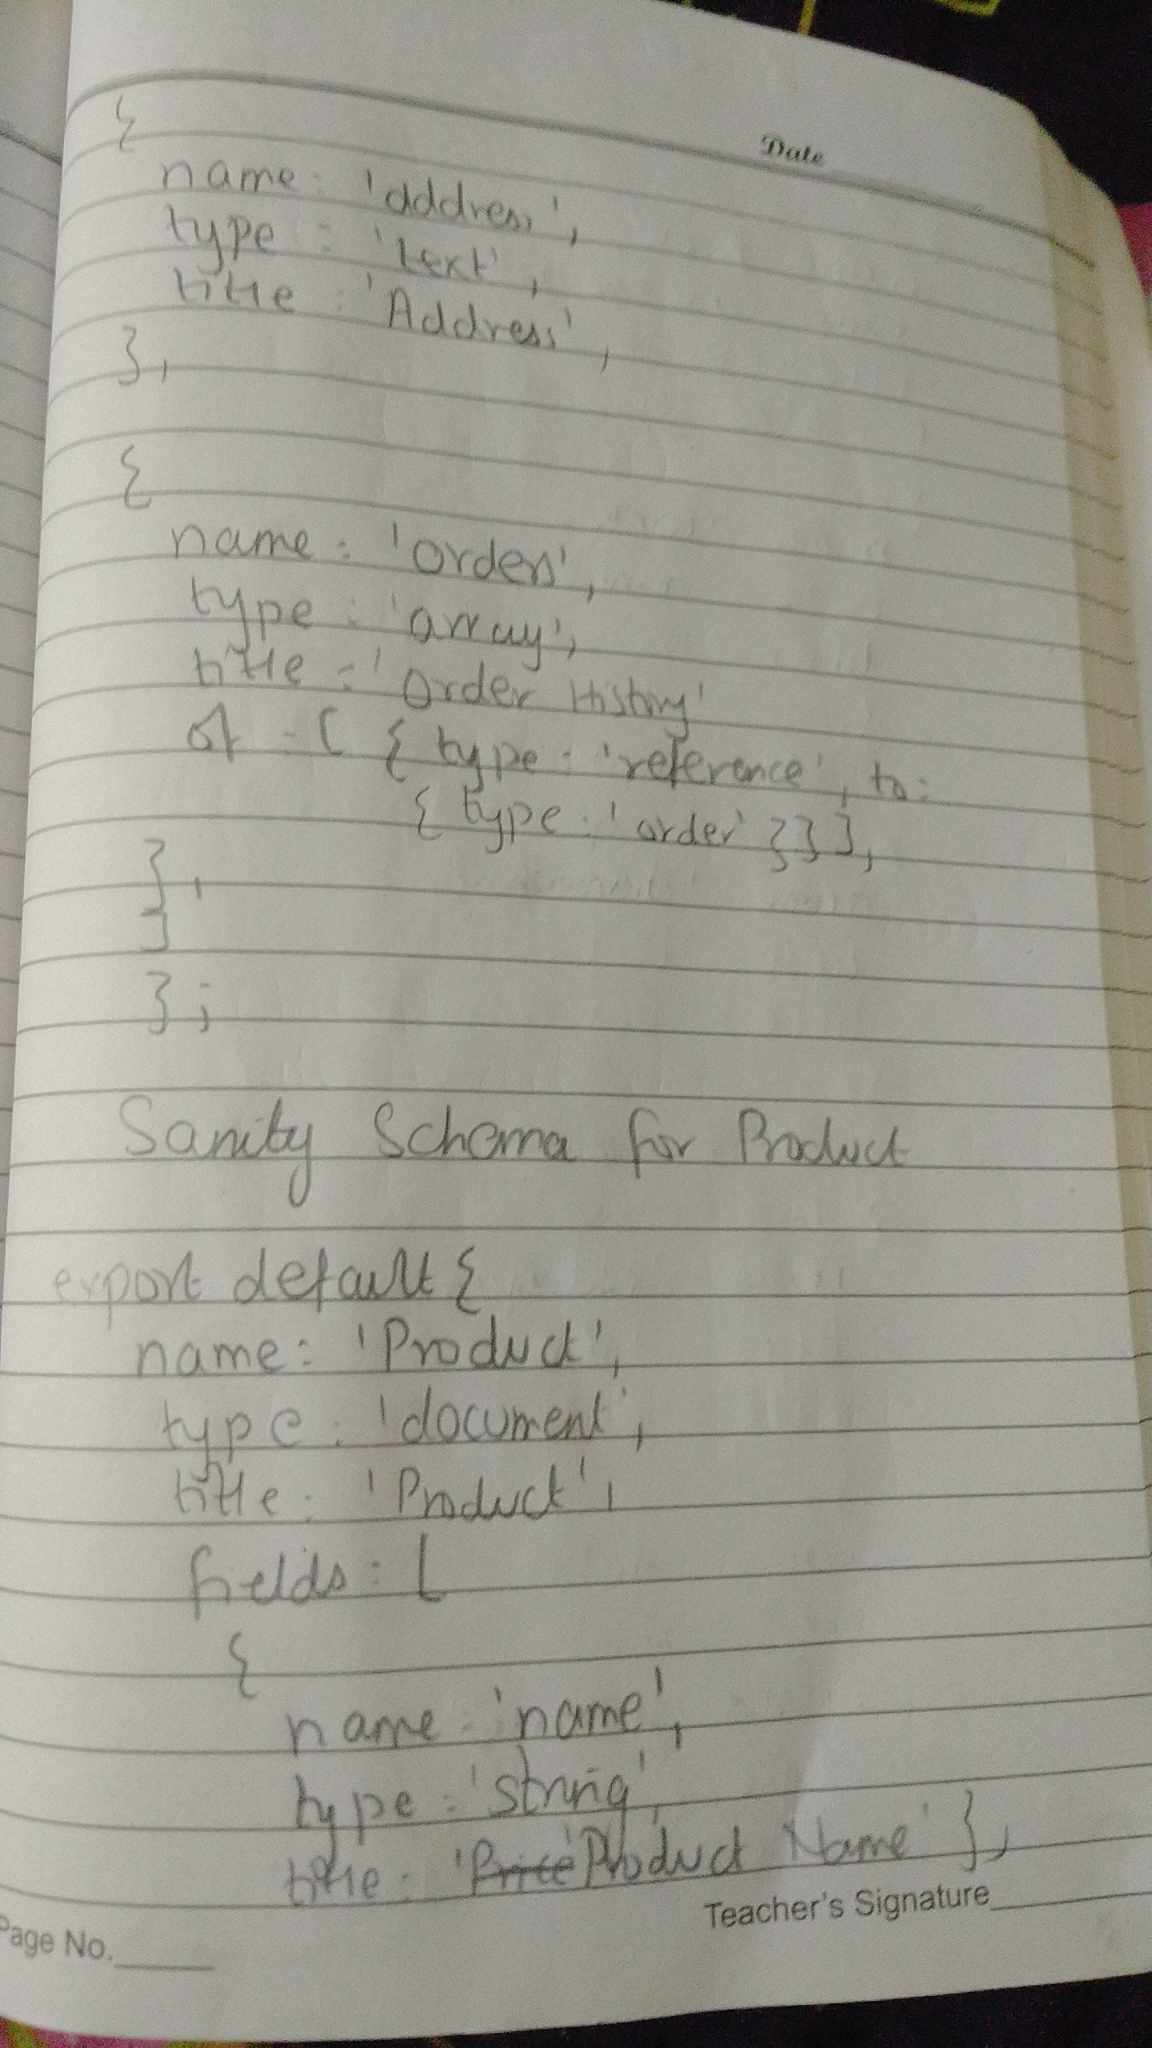 Date
{
name : 'address',
type : 'text',
title : 'Address',
},
{
name : 'orders',
type : 'array',
title : 'Order History'
of : [ { type : 'reference', to :
{ type : 'order' } } ],
},
]
};
Sanity Schema for Product
export default {
name : 'Product',
type : 'document',
title : 'Product',
fields : [
{
name : 'name',
type : 'string',
title : 'Price 'Product Name' },
Teacher's Signature
Page No.